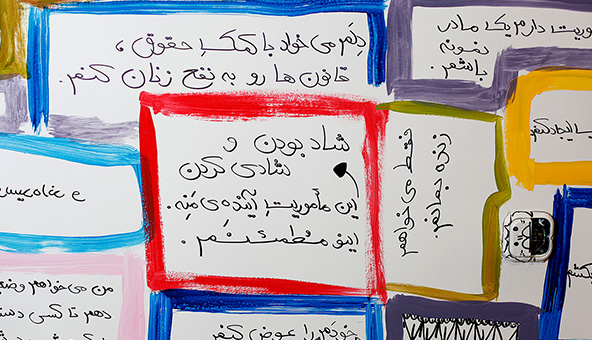 دلم می خواد با کمک حقوقی،
قانون ها رو به نفع زنان کنم.
موریت دارم یک مادر
نمونه
باشم.
شاد بودن و
شادی کردن
این مأموریتِ آینده‌ی مَنِه.
اینو مُطمئنَم.
فقط می خواهم
زنده بمانم.
ایجاد کنم
من می خواهم وض
دهم تا کسی دست
خودم را عوض کنم
بکشم